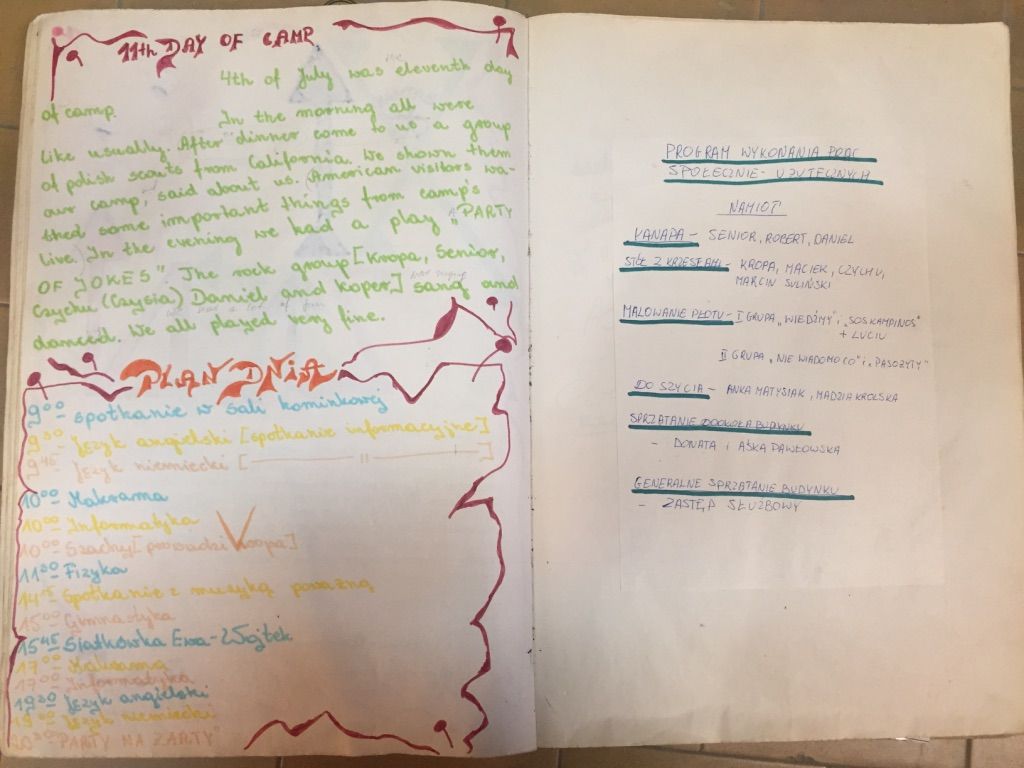 11th DAY OF CAMP
4th of July was the eleventh day
of camp. In the morning all were
like usually. After dinner come to us a group
of polish scouts from California. We shown them
our camp, said about us. (American visitors wa-
thed some important things from camp's
live.) In the evening we had a play „A PARTY
OF JOKES". The rock group [Kropa, Senior,
Czychu (Czysia) Daniel and Koper] sang and
danced. We all played very fine.
we had a lot of fun
PLAN DNIA
9⁰⁰ spotkanie w sali kominkowej
9³⁰ - Język angielski [spotkanie informacyjne]
9⁴⁵ - Język niemiecki [ —— 〃 —— ]
10⁰⁰ Makrama
10⁰⁰ Informatyka
10⁰⁰ Szachy [prowadzi Kropa]
11⁰⁰ Fizyka
14¹⁵ Spotkanie z muzyką poważną
15⁰⁰ Gimnastyka
15⁴⁵ Siatkówka Ewa - Wojtek
17⁰⁰ Makrama
17⁰⁰ Informatyka
19³⁰ Język angielski
19⁰⁰ Język niemiecki
20³⁰ "PARTY NA ŻARTY"
PROGRAM WYKONANIA PRAC
SPOŁECZNIE - UŻYTECZNYCH
NAMIOT
KANAPA - SENIOR, ROBERT, DANIEL
STÓŁ Z KRZESŁAMI - KROPA, MACIEK, CZYCHU,
MARCIN SULIŃSKI
MALOWANIE PŁOTU - I GRUPA „WIEDŹMY" i „SOS KAMPINOS"
+ LUCIU
II GRUPA „NIE WIADOMO CO" i „PASOŻYTY"
DO SZYCIA - ANKA MATYSIAK, MADZIA KROLSKA
SPRZĄTANIE DOOKOŁA BUDYNKU
- DONATA i AŚKA PAWŁOWSKA
GENERALNE SPRZĄTANIE BUDYNKU
- ZASTĘP SŁUŻBOWY